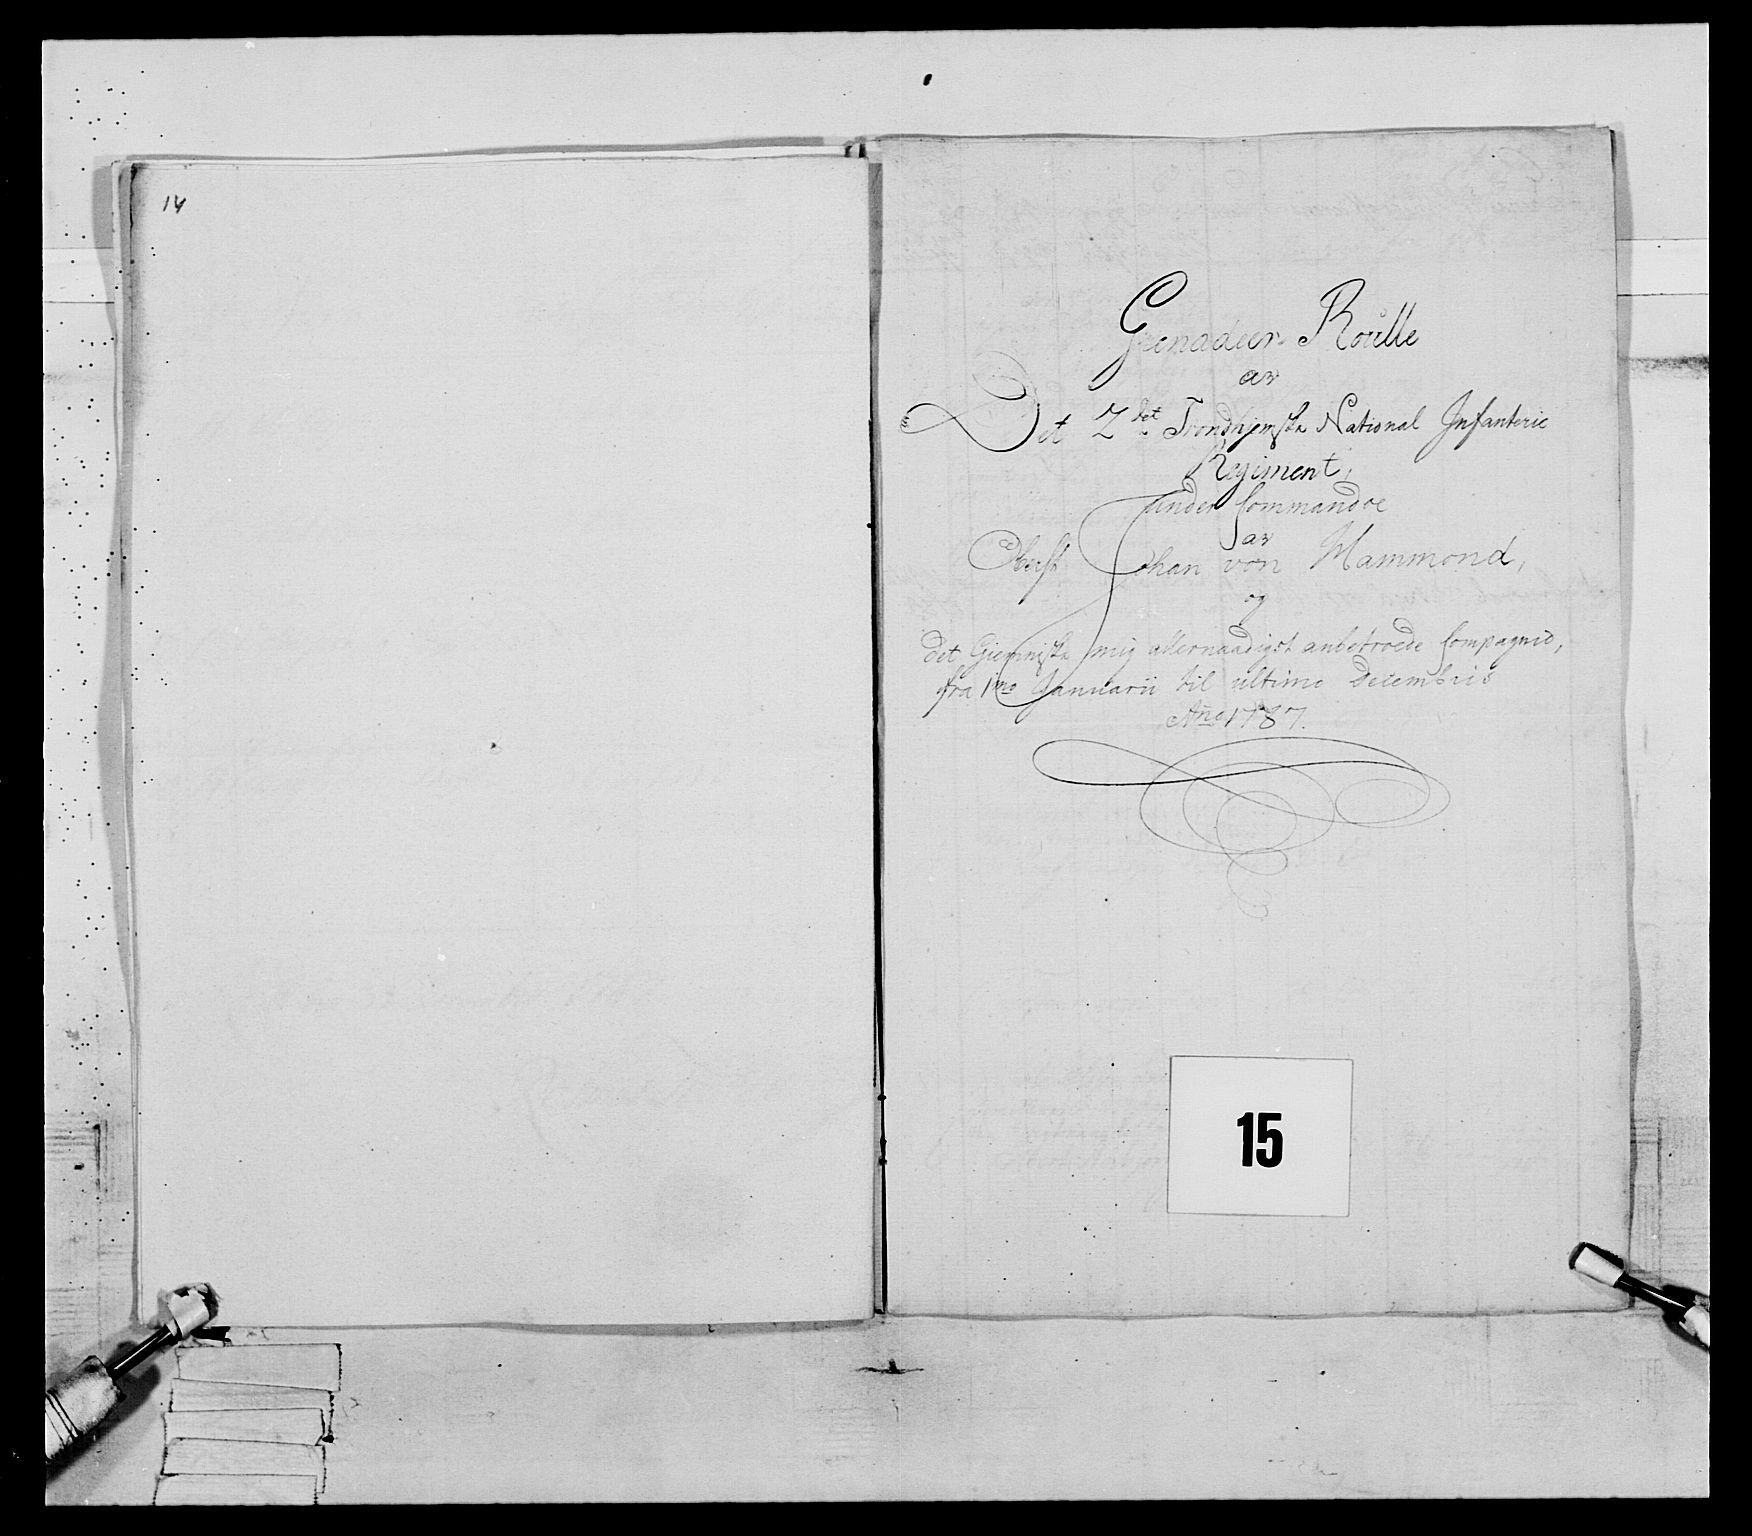 14
Grenadeer Roulle
av
Det 2det Trondhjemske National Infanterie
Regiment,
under Commandoe
av
Oberst Johan von Hammond,
og
det Giemniske mig allernaadigst anbetroede Compagnie,
fra 1mo Januarii til ultimo Decembris
Año 1787.
15